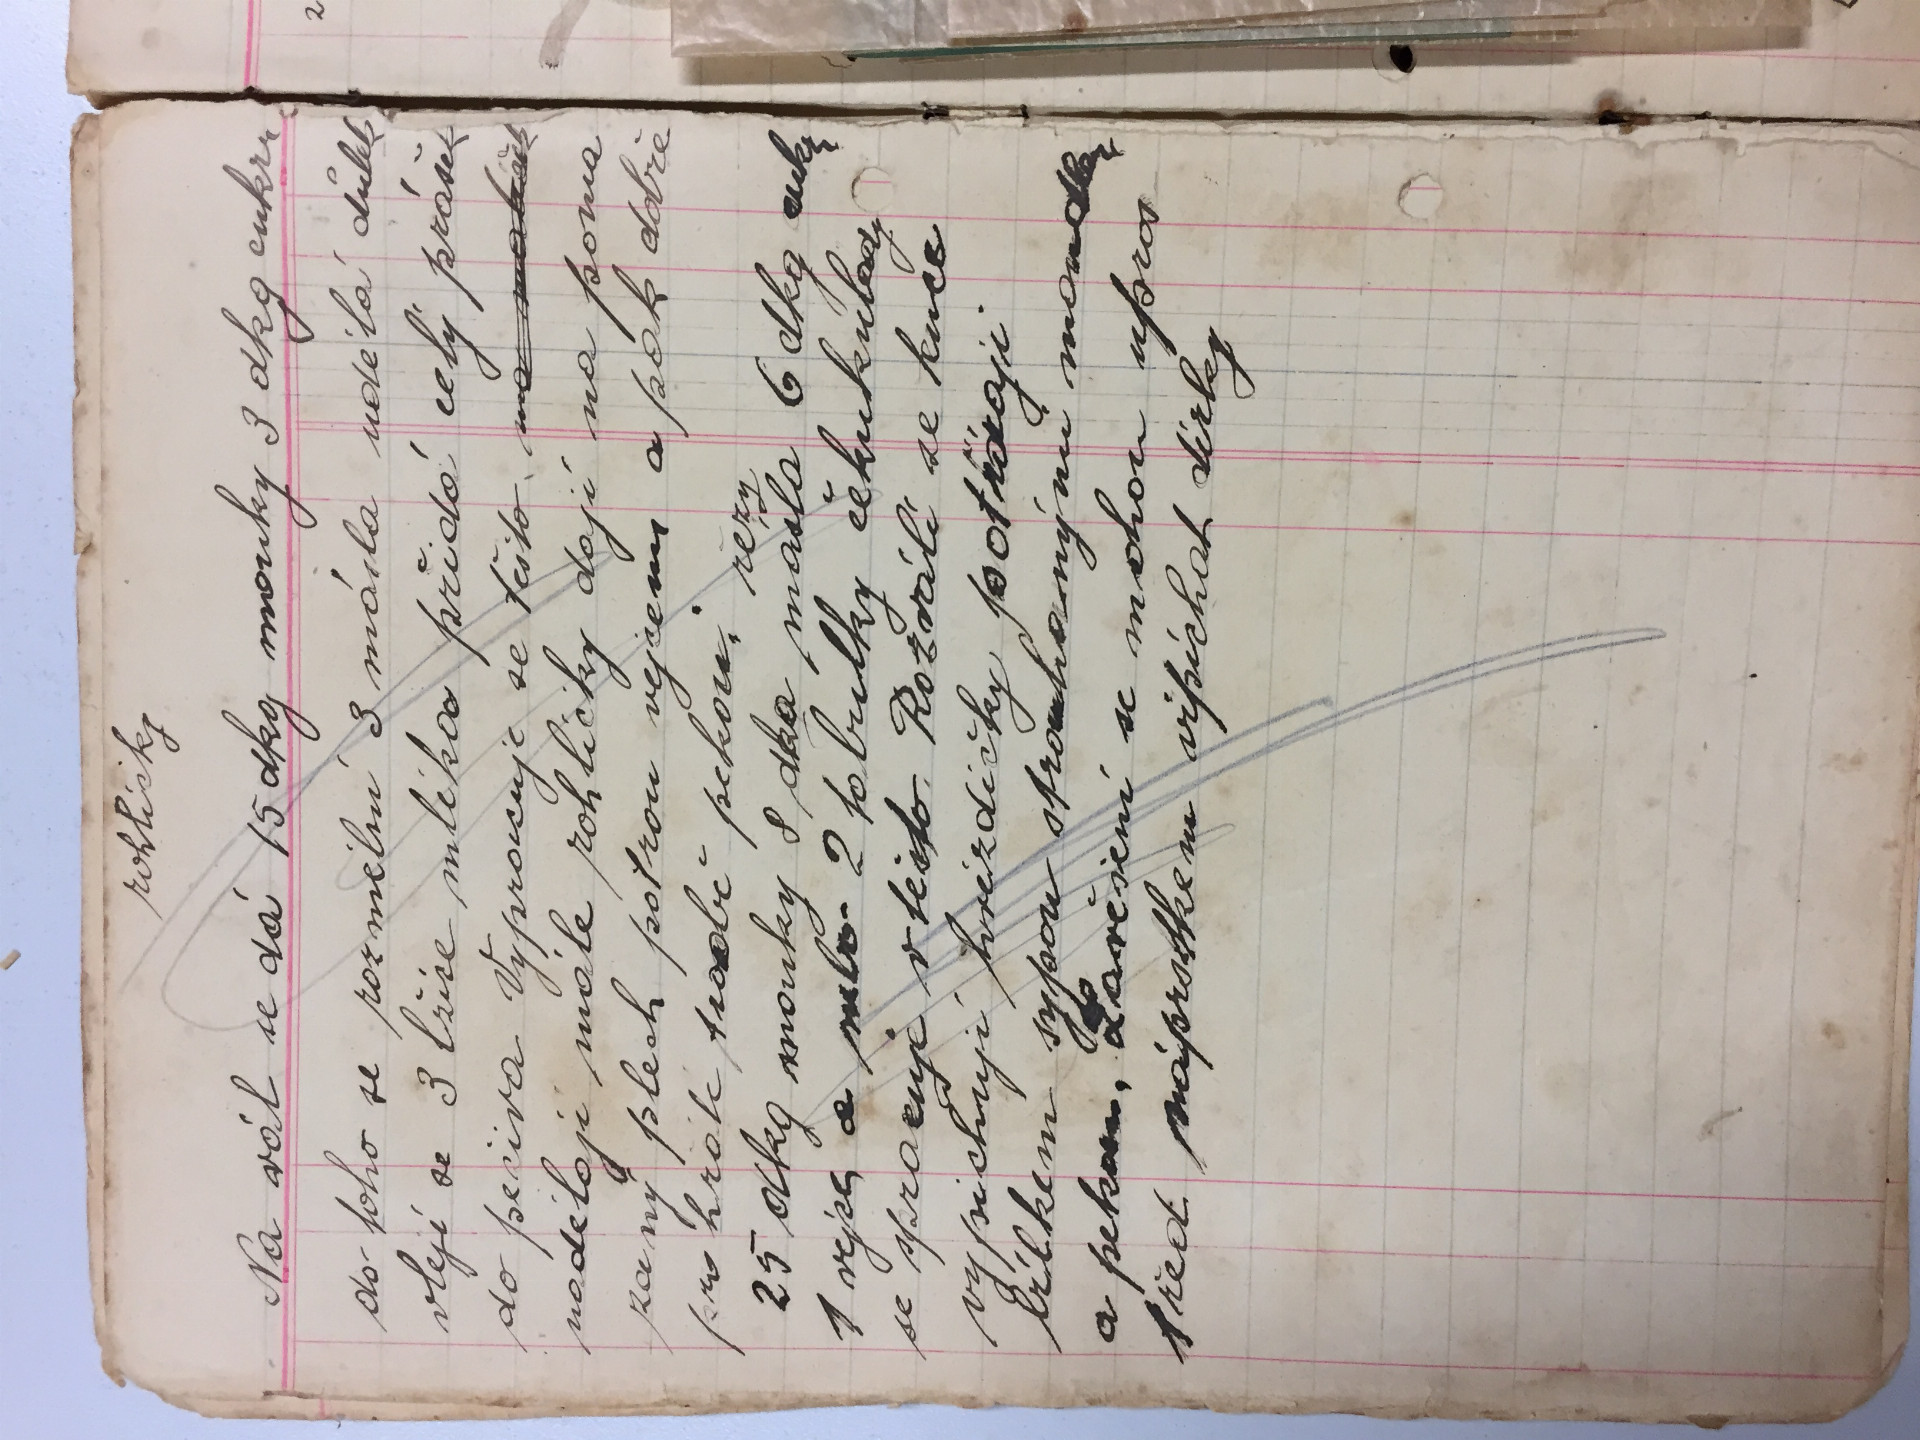 rohlícky
Na vál se dá 15 dkg mouky 3 dkg cukru
do toho se rozmělní 3 másla udělá důlek
vlejí se 3 lžíce mléka přidá celý prášek
do peciva Vypracuje se těsto
nadělají mále rohlícky dají na poma
zaný plech potrou vejcem a pak dobře
prohráté troubě pekou.
řezy
25 dkg mouky 8 dka masla 6 dkg cukr
1 vejce a 2 tobulky čekukulady
se spracuje v těsto. Rozválí se kuce
vypichují hvězdičky potírají
bílkem sypou strouhaným mandly
a pekou, Zavěšení se mohou upros
třed náprstkem vipíchat dírky